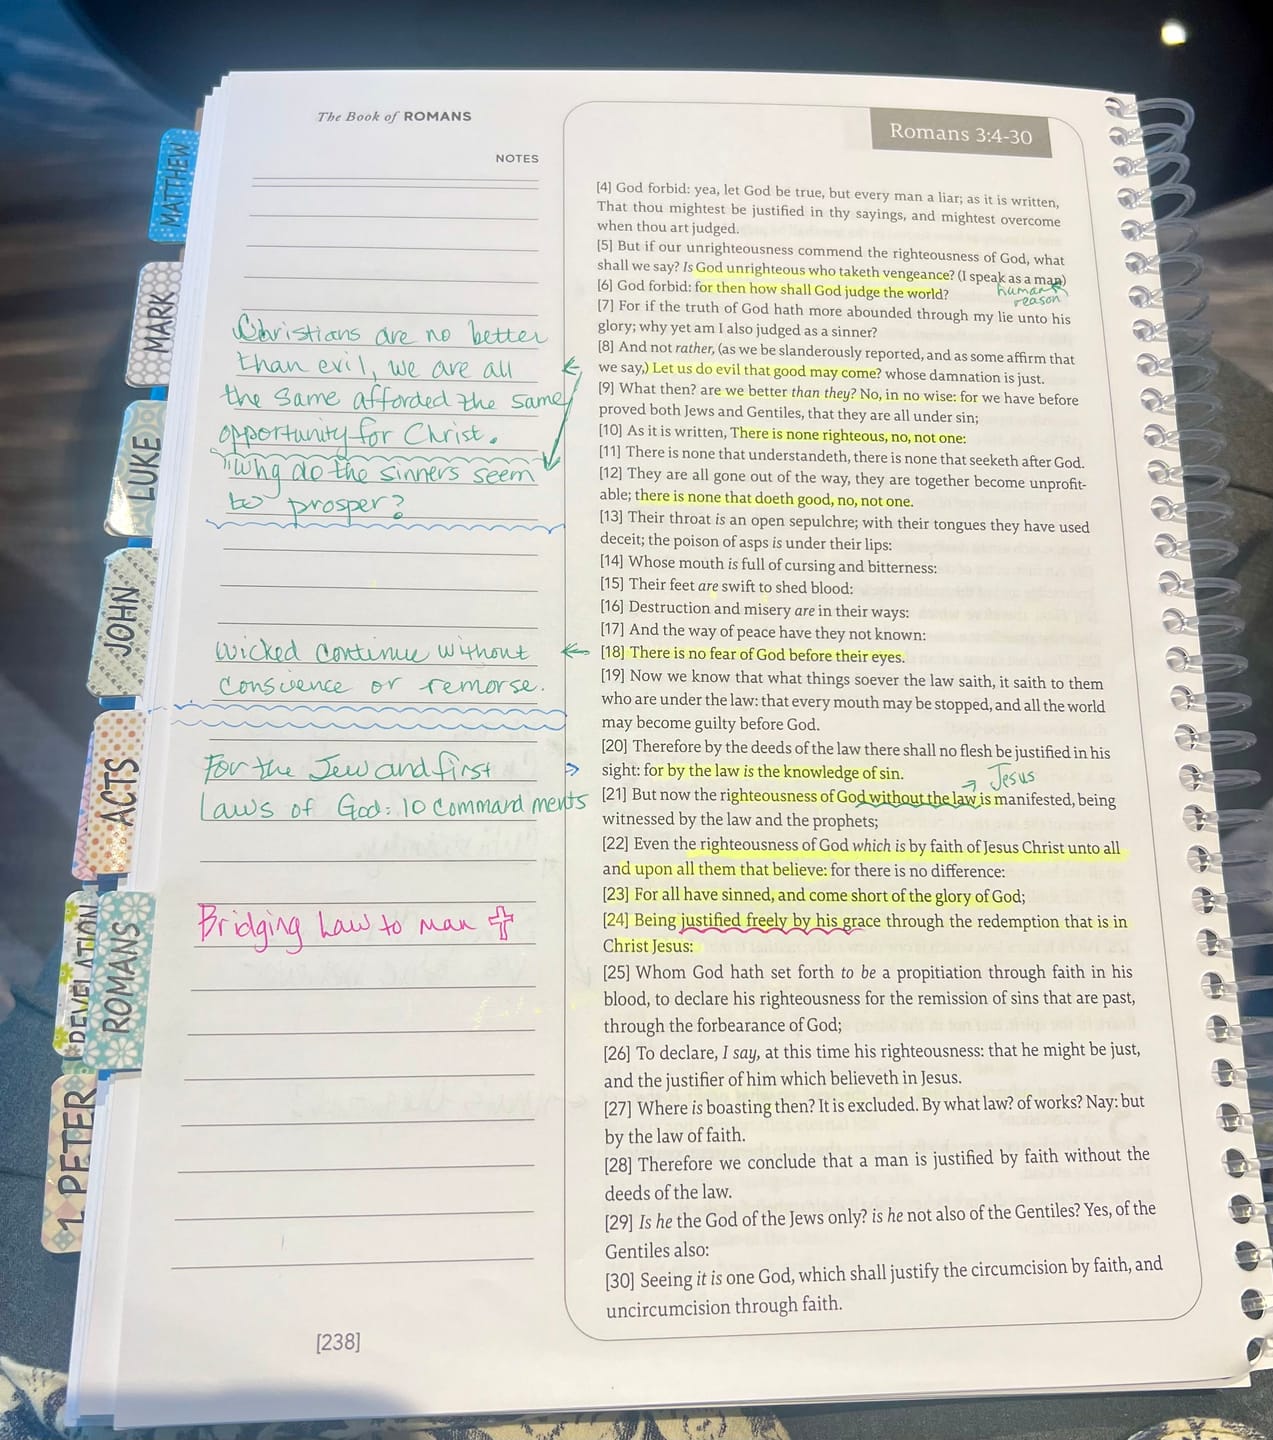 The Book of ROMANS
NOTES
Christians are no better
than evil, we are all
the same afforded the same
opportunity for Christ.
"Why do the sinners seem
to prosper?
wicked continue without
consvence or remorse.
For the Jew and first
Laws of God: 10 commandments
Bridging Law to man
[238]
Romans 3:4-30
[4] God forbid: yea, let God be true, but every man a liar; as it is written,
That thou mightest be justified in thy sayings, and mightest overcome
when thou art judged.
[5] But if our unrighteousness commend the righteousness of God, what
shall we say? Is God unrighteous who taketh vengeance? (I speak as a man)
human
reason
[6] God forbid: for then how shall God judge the world?
[7] For if the truth of God hath more abounded through my lie unto his
glory; why yet am I also judged as a sinner?
[8] And not rather, (as we be slanderously reported, and as some affirm that
we say,) Let us do evil that good may come? whose damnation is just.
[9] What then? are we better than they? No, in no wise: for we have before
proved both Jews and Gentiles, that they are all under sin;
[10] As it is written, There is none righteous, no, not one:
[11] There is none that understandeth, there is none that seeketh after God.
[12] They are all gone out of the way, they are together become unprofit-
able; there is none that doeth good, no, not one.
[13] Their throat is an open sepulchre; with their tongues they have used
deceit; the poison of asps is under their lips:
[14] Whose mouth is full of cursing and bitterness:
[15] Their feet are swift to shed blood:
[16] Destruction and misery are in their ways:
[17] And the way of peace have they not known:
[18] There is no fear of God before their eyes.
[19] Now we know that what things soever the law saith, it saith to them
who are under the law: that every mouth may be stopped, and all the world
may become guilty before God.
[20] Therefore by the deeds of the law there shall no flesh be justified in his
sight: for by the law is the knowledge of sin.
Jesus
[21] But now the righteousness of God without the law is manifested, being
witnessed by the law and the prophets;
[22] Even the righteousness of God which is by faith of Jesus Christ unto all
and upon all them that believe: for there is no difference:
[23] For all have sinned, and come short of the glory of God;
[24] Being justified freely by his grace through the redemption that is in
Christ Jesus:
[25] Whom God hath set forth to be a propitiation through faith in his
blood, to declare his righteousness for the remission of sins that are past,
through the forbearance of God;
[26] To declare, I say, at this time his righteousness: that he might be just,
and the justifier of him which believeth in Jesus.
[27] Where is boasting then? It is excluded. By what law? of works? Nay: but
by the law of faith.
[28] Therefore we conclude that a man is justified by faith without the
deeds of the law.
[29] Is he the God of the Jews only? is he not also of the Gentiles? Yes, of the
Gentiles also:
[30] Seeing it is one God, which shall justify the circumcision by faith, and
uncircumcision through faith.
MATTHEW
MARK
LUKE
JOHN
ACTS
ROMANS
PETER